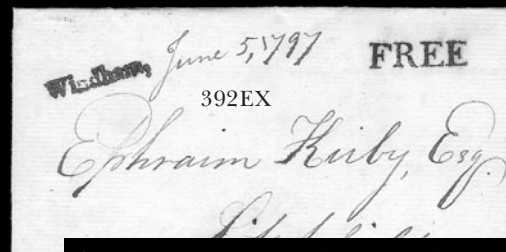 Windham, June 5, 1797 FREE
392EX
Ephraim Kirby, Esq.